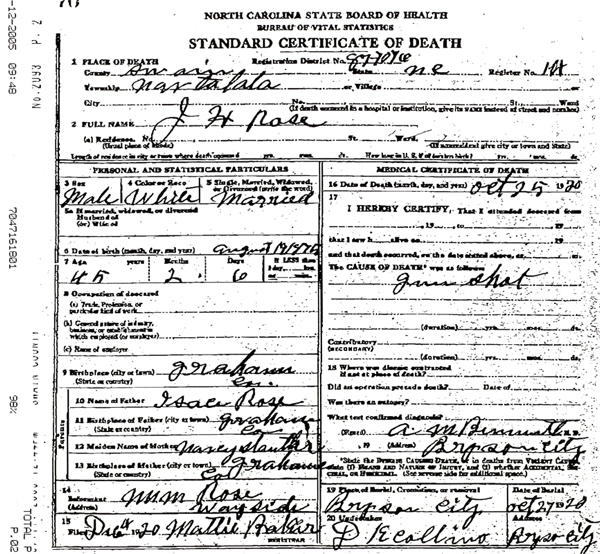 NORTH CAROLINA STATE BOARD OF HEALTH
BUREAU OF VITAL STATISTICS
STANDARD CERTIFICATE OF DEATH
1 PLACE OF DEATH Registration District No.
County Swain State NC Register No.
Township Nantahala or Village
City No. St. Ward
(If death occurred in a hospital or institution, give its NAME instead of street and number)
2 FULL NAME J H Rose
(a) Residence. No. St. Ward.
(Usual place of abode) (If nonresident give city or town and State)
Length of residence in city or town where death occurred yrs. mos. ds. How long in U. S., if of foreign birth? yrs. mos. ds.
PERSONAL AND STATISTICAL PARTICULARS
3 Sex 4 Color or Race 5 Single, Married, Widowed, or Divorced (write the word)
Male White Married
5a If married, widowed, or divorced
Husband of
(or) Wife of
6 Date of birth (month, day, and year) August 19 1875
7 Age years Months Days If LESS than
45 2 6
8 Occupation of deceased
(a) Trade, Profession, or
particular kind of work
(b) General nature of industry,
business, or establishment in
which employed (or employer)
(c) Name of employer
9 Birthplace (city or town) Graham
(State or country) Co.
Parents
10 Name of Father Isace Rose
11 Birthplace of Father (city or town) Graham
(State or country) Co
12 Maiden Name of Mother Nancy
13 Birthplace of Mother (city or town) Graham
(State or country) Co
14 Informant Rose
(Address) Wayside
15 Filed 1920 Mattie Baker
REGISTRAR
MEDICAL CERTIFICATE OF DEATH
16 Date of Death (month, day, and year) Oct 25 1920
17
I HEREBY CERTIFY, That I attended deceased from
19 to 19
that I saw h alive on 19
and that death occurred, on the date stated above, at m.
The CAUSE OF DEATH* was as follows
Gun shot
(duration) yrs. mos. ds.
Contributory
(SECONDARY)
(duration) yrs. mos. ds.
18 Where was disease contracted
if not at place of death?
Did an operation precede death? Date of
Was there an autopsy?
What test confirmed diagnosis?
(Signed) A M Bennett M.D.
, 19 (Address) Bryson City
*State the DISEASE CAUSING DEATH, or in deaths from VIOLENT CAUSES, state (1) MEANS AND NATURE OF INJURY, and (2) whether ACCIDENTAL, SUICIDAL, or HOMICIDAL. (See reverse side for additional space.)
19 Place of Burial, Cremation, or removal Date of Burial
Bryson City Oct 27 1920
20 Undertaker Address
Bryson City
-12-2005 09:48
7047161801
98%
TOTAL P.
P.02